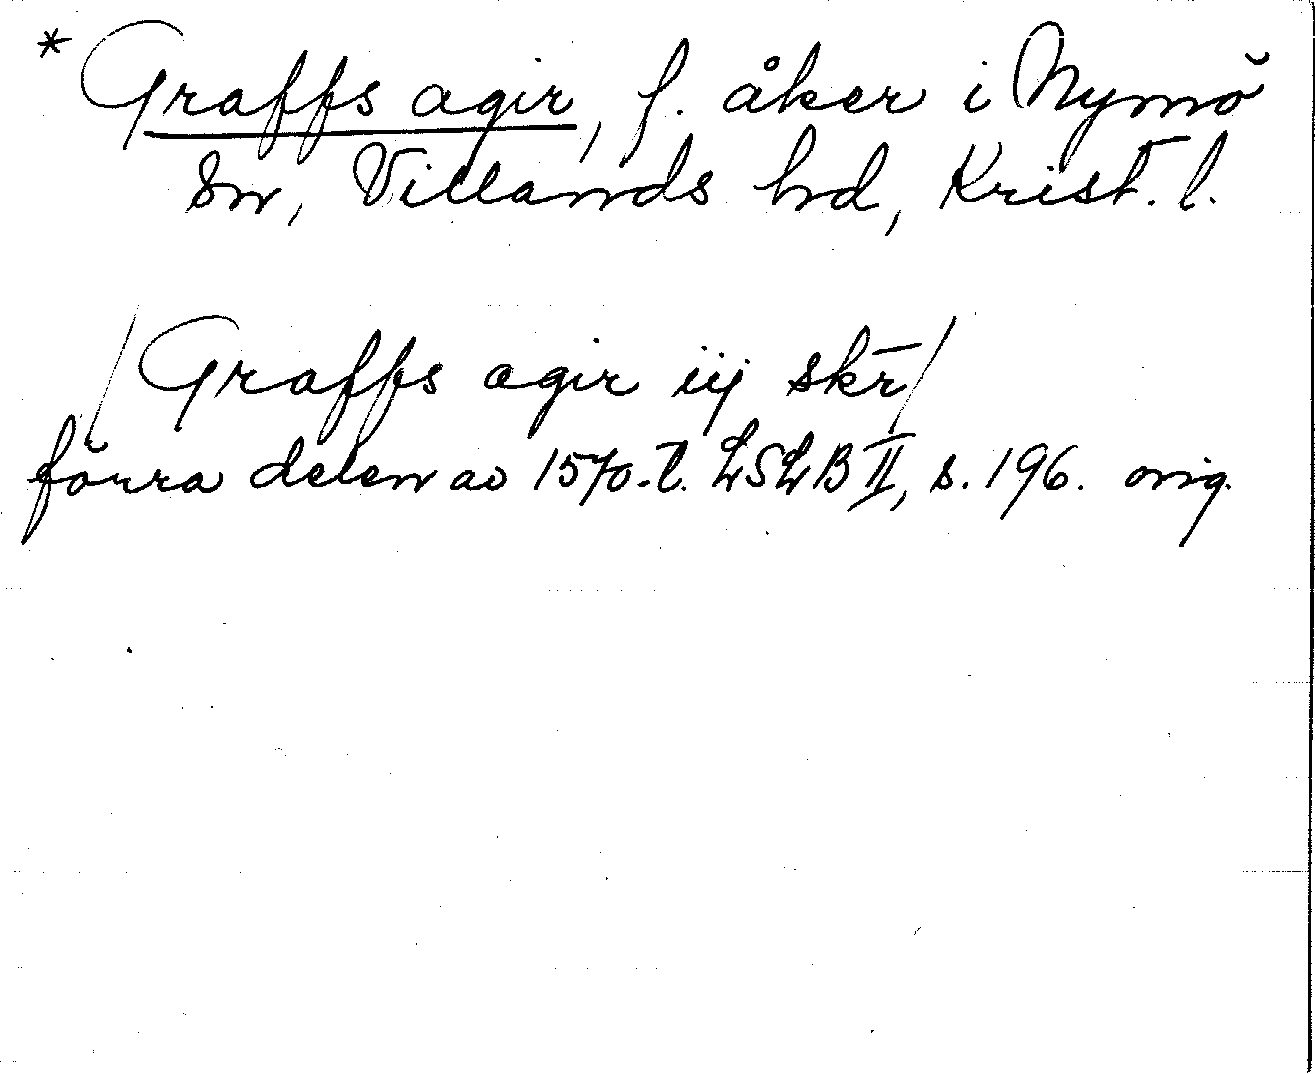 * Graffs agir, f. åker i Nymö
sn, Villands hd, Krist. l.
/Graffs agir iij skr̄/
förra delen av 1570-t. LSLB II, s. 196. orig.